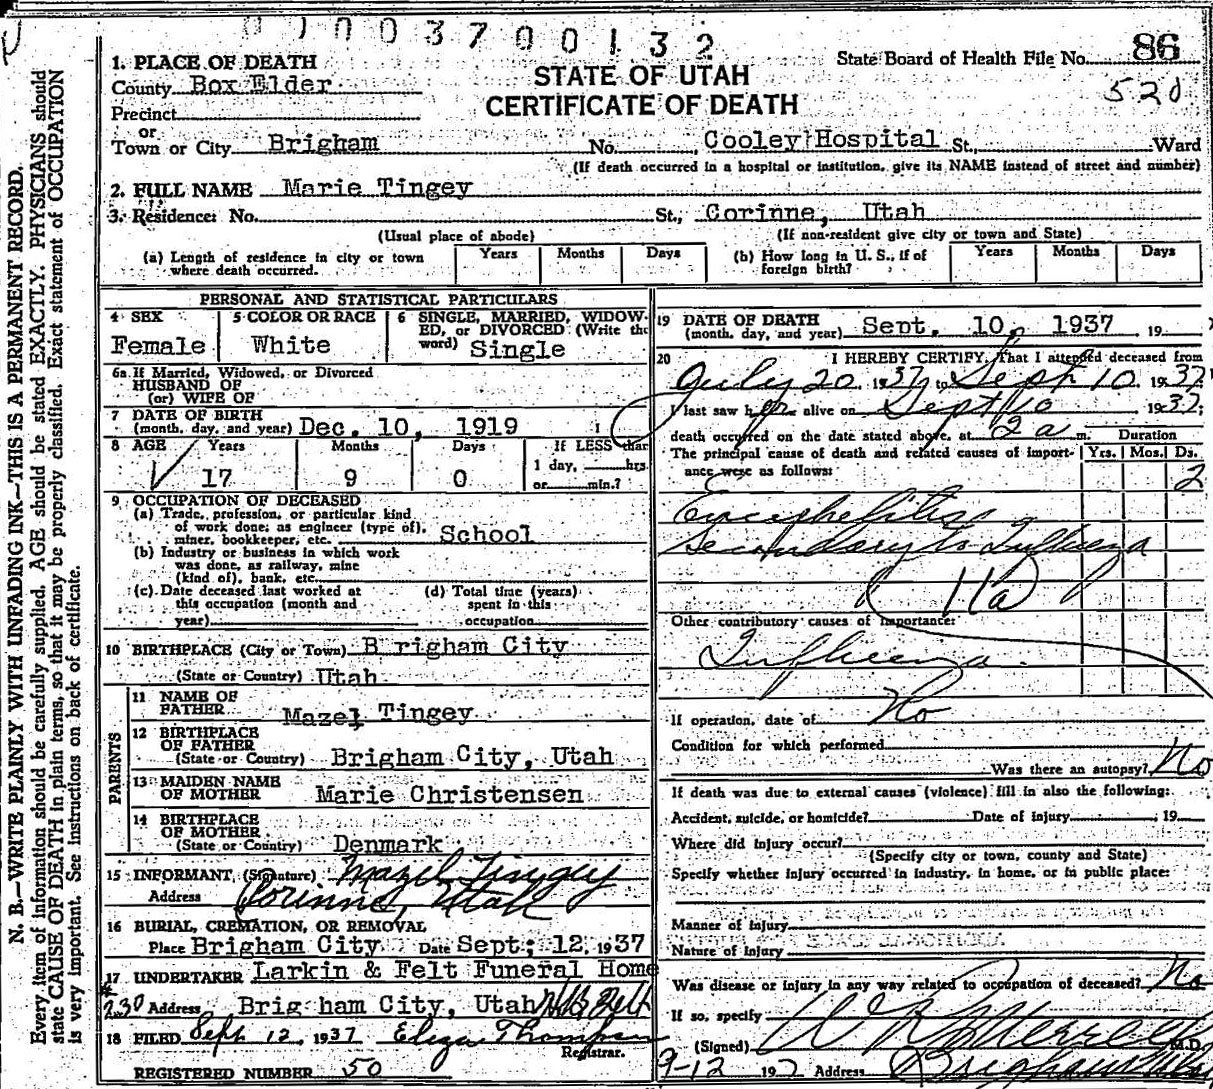 003700132
STATE OF UTAH
CERTIFICATE OF DEATH
State Board of Health File No. 86
520
1. PLACE OF DEATH
County Box Elder
Precinct
or
Town or City Brigham No. Cooley Hospital St., Ward
(If death occurred in a hospital or institution, give its NAME instead of street and number)
2. FULL NAME Marie Tingey
3. Residence: No. St., Corinne, Utah
(Usual place of abode) (If non-resident give city or town and State)
(a) Length of residence in city or town where death occurred. Years Months Days
(b) How long in U. S., if of foreign birth? Years Months Days
PERSONAL AND STATISTICAL PARTICULARS
4 SEX Female
5 COLOR OR RACE White
6 SINGLE, MARRIED, WIDOWED, or DIVORCED (Write the word) Single
6a If Married, Widowed, or Divorced
HUSBAND OF
(or) WIFE OF
7 DATE OF BIRTH
(month, day, and year) Dec. 10, 1919
8 AGE Years Months Days If LESS than
17 9 0 1 day, hrs.
or min.?
9 OCCUPATION OF DECEASED
(a) Trade, profession, or particular kind
of work done; as engineer (type of),
miner, bookkeeper, etc. School
(b) Industry or business in which work
was done, as railway, mine
(kind of), bank, etc.
(c) Date deceased last worked at
this occupation (month and
year)
(d) Total time (years)
spent in this
occupation
10 BIRTHPLACE (City or Town) B righam City
(State or Country) Utah
PARENTS
11 NAME OF
FATHER Mazel Tingey
12 BIRTHPLACE
OF FATHER
(State or Country) Brigham City, Utah
13 MAIDEN NAME
OF MOTHER Marie Christensen
14 BIRTHPLACE
OF MOTHER
(State or Country) Denmark
15 INFORMANT, (Signature) Mazel Tingey
Address Corinne, Utah
16 BURIAL, CREMATION, OR REMOVAL
Place Brigham City Date Sept; 12, 1937
17 UNDERTAKER Larkin & Felt Funeral Home
#230 Address Brig ham City, Utah Felt
18 FILED Sept 12, 1937 Eliza Thompson
Registrar.
REGISTERED NUMBER 50
19 DATE OF DEATH
(month, day, and year) Sept. 10, 1937 19
20 I HEREBY CERTIFY, That I attended deceased from
July 20 1937 to Sept 10 1937
I last saw her alive on Sept 10 1937;
death occurred on the date stated above, at 2 a m. Duration
The principal cause of death and related causes of importance were as follows: Yrs. Mos. Ds.
2
Encephelitis
Secondary to Influenza
11a
Other contributory causes of importance:
Influenza.
If operation, date of No
Condition for which performed
Was there an autopsy? No
If death was due to external causes (violence) fill in also the following:
Accident, suicide, or homicide? Date of injury 19
Where did injury occur?
(Specify city or town, county and State)
Specify whether injury occurred in industry, in home, or in public place:
Manner of injury
Nature of injury
Was disease or injury in any way related to occupation of deceased? No
If so, specify
(Signed) W R Merrell M.D.
9-12 193 Address Brigham Utah
N. B.—WRITE PLAINLY WITH UNFADING INK—THIS IS A PERMANENT RECORD.
Every item of information should be carefully supplied. AGE should be stated EXACTLY. PHYSICIANS should
state CAUSE OF DEATH in plain terms, so that it may be properly classified. Exact statement of OCCUPATION
is very important. See instructions on back of certificate.